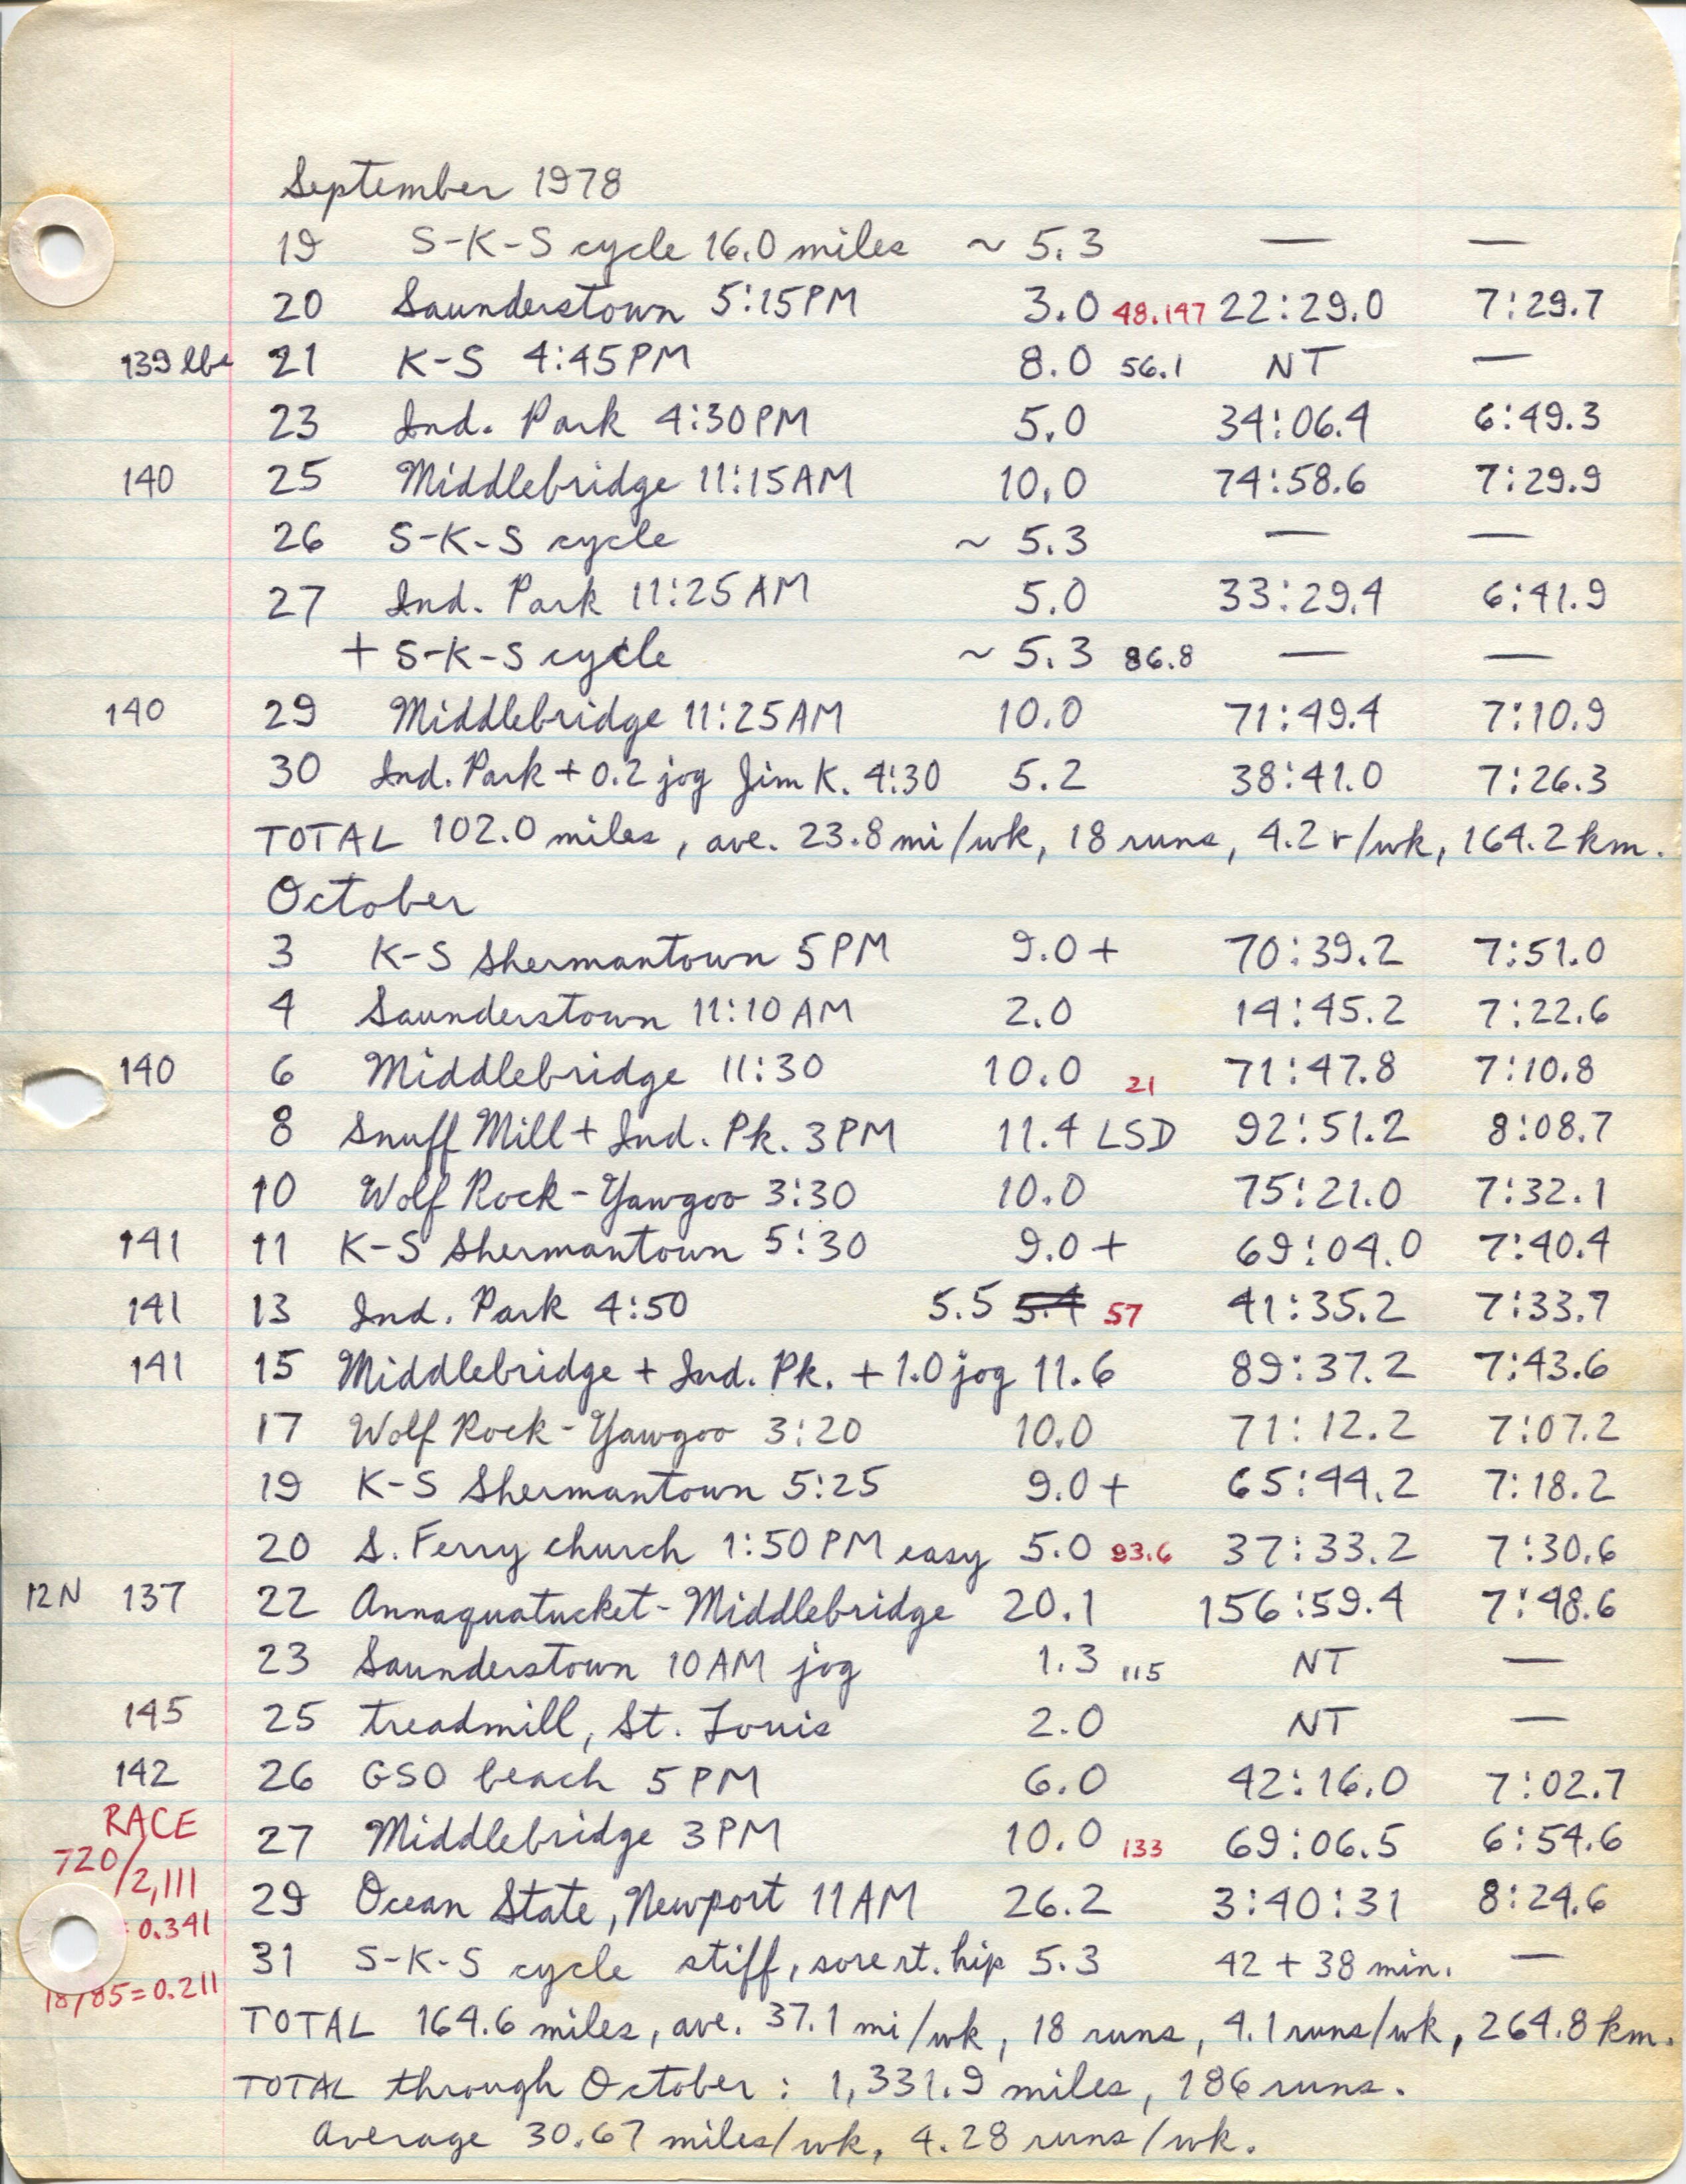 September 1978
19 S-K-S cycle 16.0 miles ~ 5.3 — —
20 Saunderstown 5:15PM 3.0 48.147 22:29.0 7:29.7
139 lbs 21 K-S 4:45PM 8.0 56.1 NT —
23 Ind. Park 4:30PM 5.0 34:06.4 6:49.3
140 25 Middlebridge 11:15AM 10.0 74:58.6 7:29.9
26 S-K-S cycle ~ 5.3 — —
27 Ind. Park 11:25AM 5.0 33:29.4 6:41.9
+ S-K-S cycle ~ 5.3 86.8 — —
140 29 Middlebridge 11:25AM 10.0 71:49.4 7:10.9
30 Ind. Park + 0.2 jog Jim K. 4:30 5.2 38:41.0 7:26.3
TOTAL 102.0 miles, ave. 23.8 mi/wk, 18 runs, 4.2 r/wk, 164.2 km.
October
3 K-S Shermantown 5PM 9.0+ 70:39.2 7:51.0
4 Saunderstown 11:10AM 2.0 14:45.2 7:22.6
140 6 Middlebridge 11:30 10.0 21 71:47.8 7:10.8
8 Snuff Mill + Ind. Pk. 3PM 11.4 LSD 92:51.2 8:08.7
10 Wolf Rock-Yawgoo 3:30 10.0 75:21.0 7:32.1
141 11 K-S Shermantown 5:30 9.0+ 69:04.0 7:40.4
141 13 Ind. Park 4:50 5.5 5.4 57 41:35.2 7:33.7
141 15 Middlebridge + Ind. Pk. + 1.0 jog 11.6 89:37.2 7:43.6
17 Wolf Rock-Yawgoo 3:20 10.0 71:12.2 7:07.2
19 K-S Shermantown 5:25 9.0+ 65:44.2 7:18.2
20 S. Ferry church 1:50PM easy 5.0 93.6 37:33.2 7:30.6
12N 137 22 Annaquatucket-Middlebridge 20.1 156:59.4 7:48.6
23 Saunderstown 10AM jog 1.3 115 NT —
145 25 treadmill, St. Louis 2.0 NT —
142 26 GSO beach 5PM 6.0 42:16.0 7:02.7
RACE
27 Middlebridge 3PM 10.0 133 69:06.5 6:54.6
720/2,111
29 Ocean State, Newport 11AM 26.2 3:40:31 8:24.6
= 0.341
31 S-K-S cycle stiff, sore rt. hip 5.3 42 + 38 min. —
18/85=0.211
TOTAL 164.6 miles, ave. 37.1 mi/wk, 18 runs, 4.1 runs/wk, 264.8 km.
TOTAL through October: 1,331.9 miles, 186 runs.
Average 30.67 miles/wk, 4.28 runs/wk.